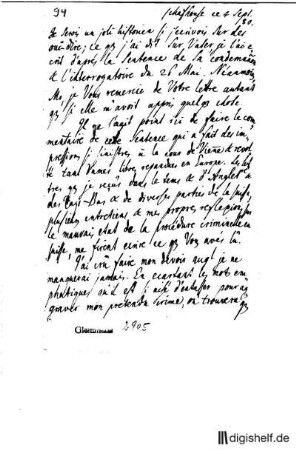 94
Schafhouse ce 4 Sept.
80.
Je serois un joli historien si j'ecrivois sur des
ouï-dire; ce qe j'ai dit sur Vaser je l'ai é-
crit d'après la Sentence de sa condamnation
& l'interrogatoire du 26 Mai. Néanmoins
Mr. je Vous remercie de Votre lettre autant
qe si elle m'avoit appris quelqe chose.
Il ne s'agit point ici de faire le com-
mentaire de cette Sentence qui a fait des im-
pressions si sinistres à la cour de Vienne & revolté
tant d'ames libres repandues en Europe. Les let-
tres qe je reçus dans le tems & d'Anglet. &
des Pais-Bas & de diverses parties de la Suisse,
plusieurs entretiens & mes propres reflexions sur
le mauvais état de la procédure criminelle en
Suisse, me firent ecrire ce qe Vous avez lu.
J'ai crû faire mon devoir auql je ne
manquerai jamais. En ecartant les mots em-
phatiques qu'il est si aisé d'entasser pour ag-
graver mon pretendu crime, on trouvera qe
2905
digishelf.de